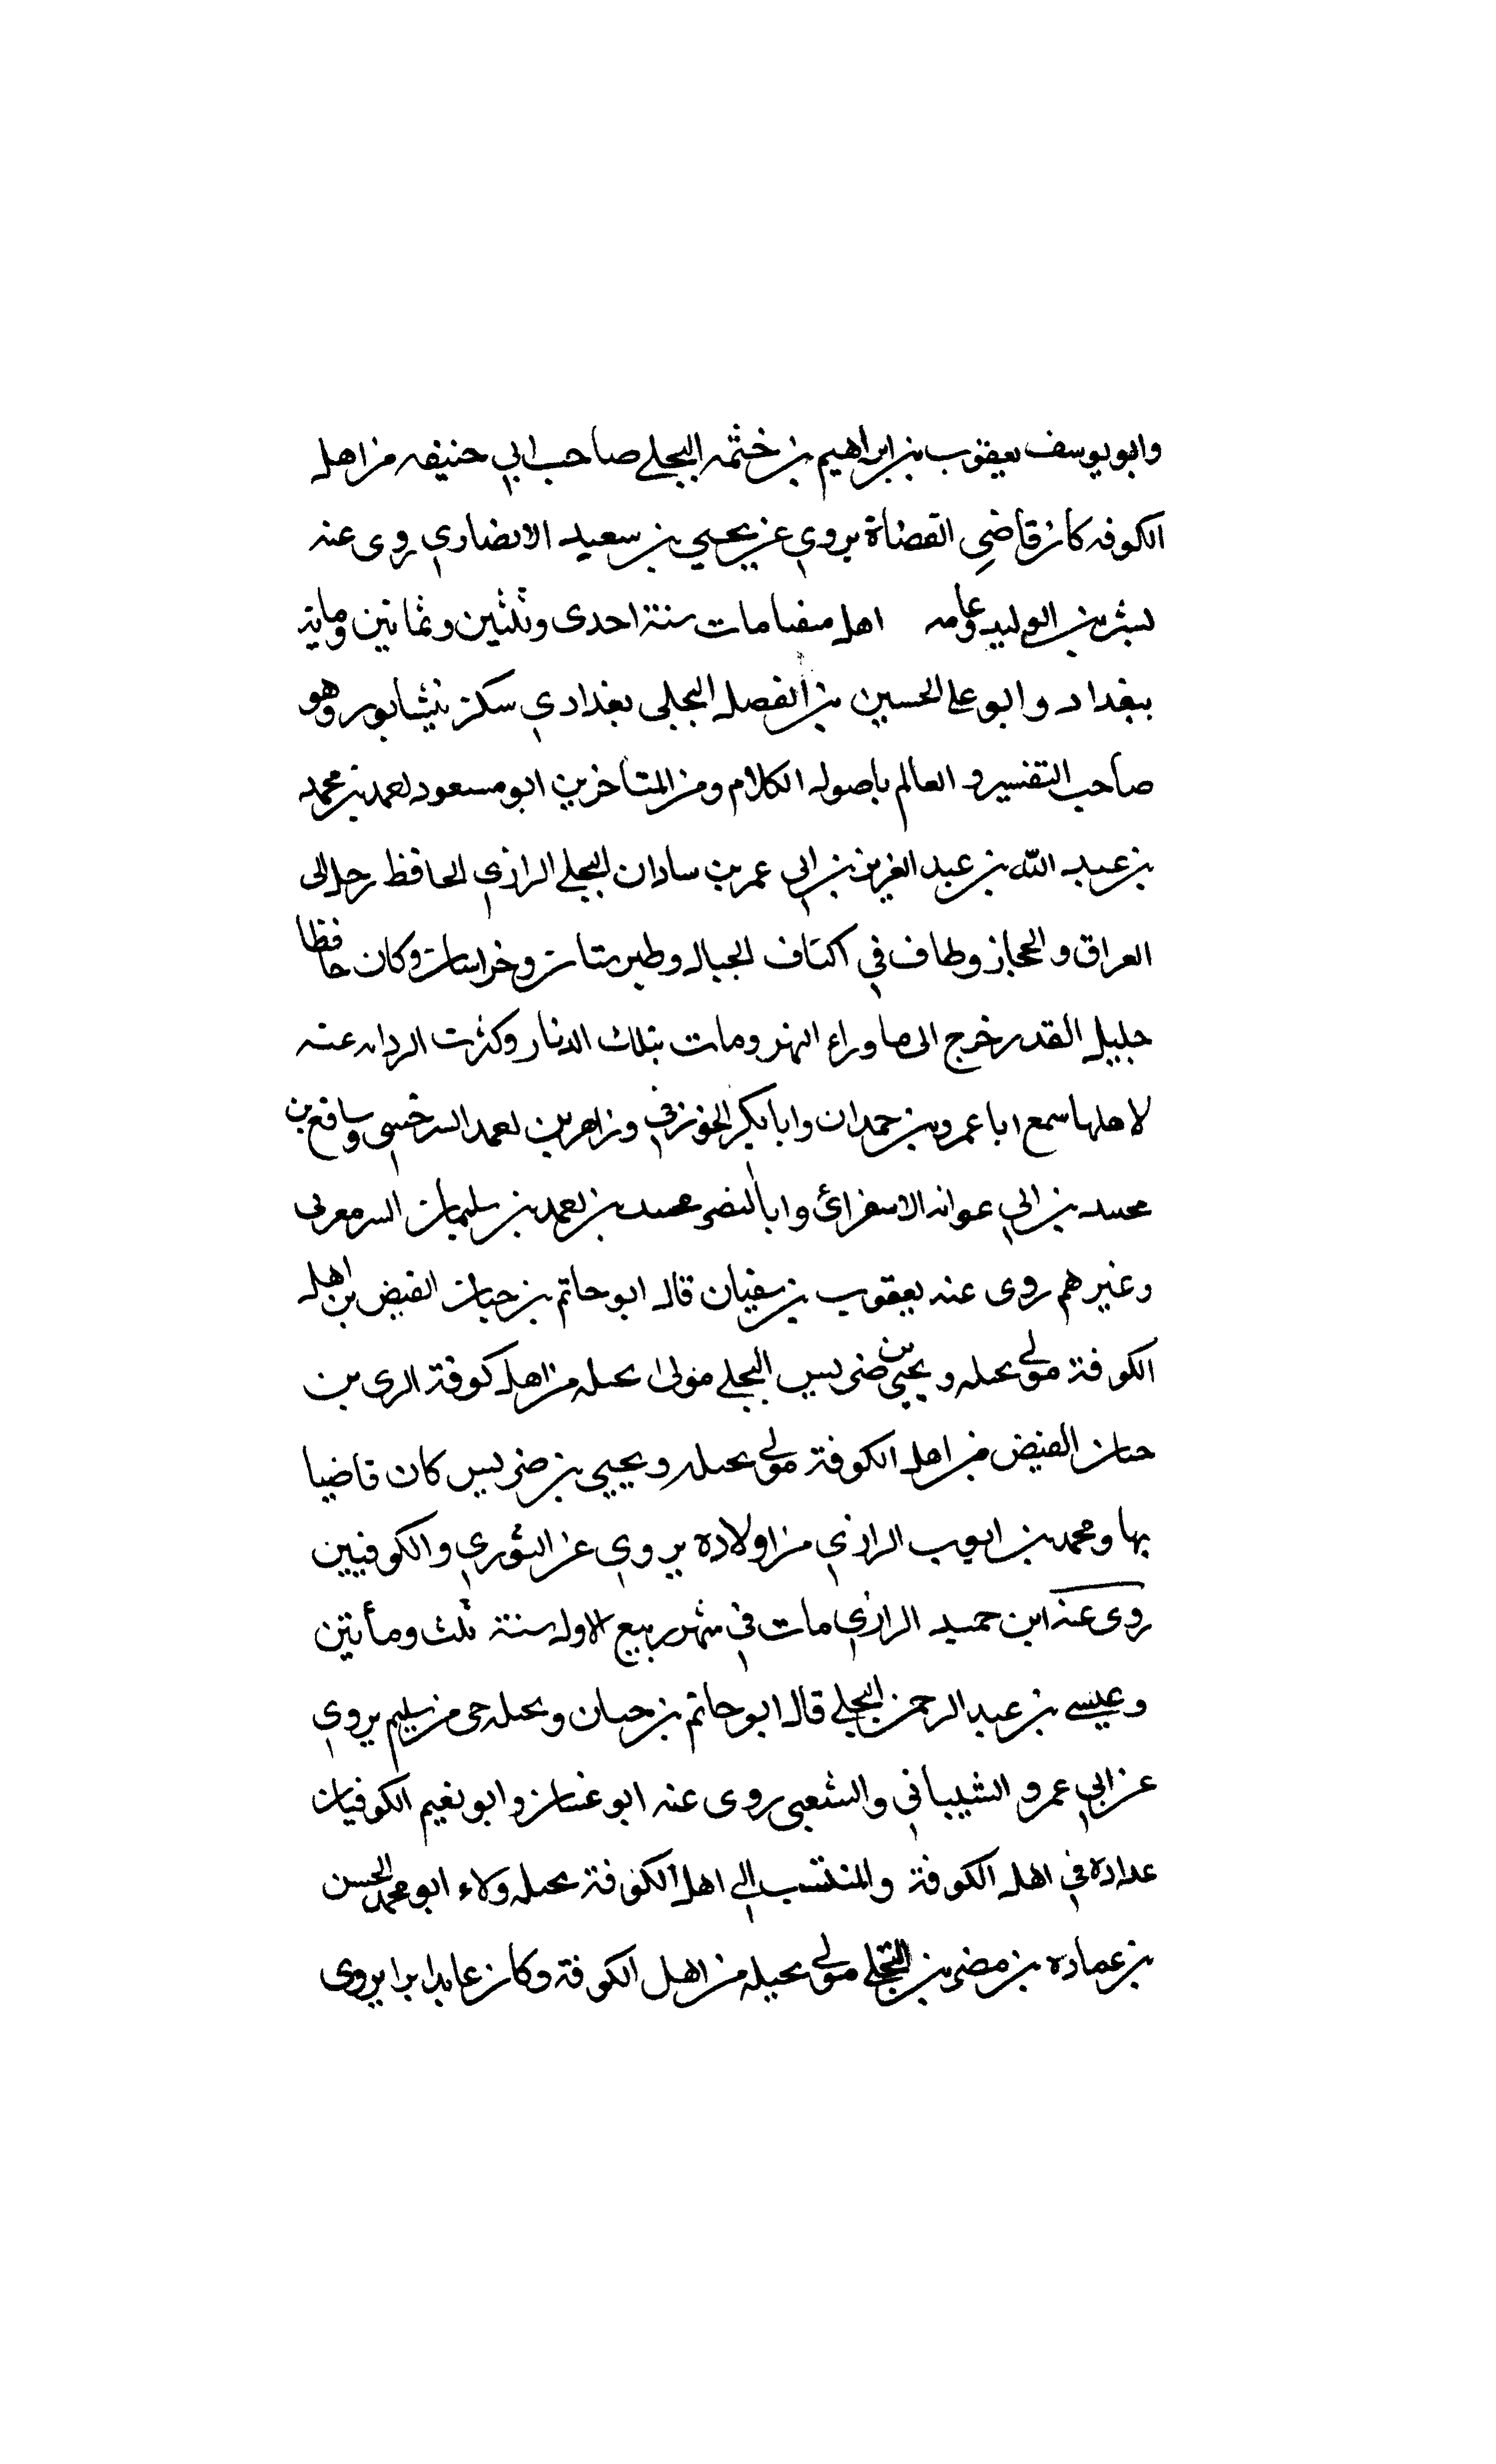 وابو يوسف يعقوب بن ابراهيم بن خثمه البجلي صاحب ابي حنيفه من اهل
الكوفه كان قاضي القضاة يروي عن يحيي بن سعيد الانصاري روى عنه
بشر بن الوليد وعامه اهل مات سنة احدى وثلثين وثمانين ومائة
ببغداد وابو علي الحسين بن الفضل البجلي بغدادي سكن نيشابور وهو
صاحب التفسير والعالم باصول الكلام ومن المتاخرين ابو مسعود احمد بن محمد
بن عبد الله بن عبد العزيز بن ابي عمر بن سادان البجلي الرازي الحافظ رحل الى
العراق والحجاز وطاف في اكناف الجبال وطبرستان وخراسان وكان حافظا
جليل القدر خرج الى ما وراء النهر ومات بتلك الديار وكثرت الرواية عنه
لاهلها سمع ابا عمرو بن حمدان وابا بكر الخوزقي وزاهر بن احمد السرخسي وسافع بن
محمد بن ابي عوانه الاسفرائي وابا النضر محمد بن احمد بن سليمان
وغيرهم روى عنه يعقوب بن سفيان قال ابو حاتم بن حبان الفيض من اهل
الكوفة مولي بجيله ويحيي بن ضريس البجلي مولى بجيله من اهل كوفة الري بن
حبان الفيض من اهل الكوفة مولي بجيله ويحيي بن ضريس كان قاضيا
بها ومحمد بن ايوب الرازي من اولاده يروي عن الثوري والكوفيين
روى عنه ابن حميد الرازي مات في شهر ربيع الاول سنة ثلث ومأتين
وعيسى بن عبد الرحمن البجلي قال ابو حاتم بن حبان وبجيله حي من سليم يروي
عن ابي عمرو الشيباني والشعبي روى عنه ابو غسان وابو نعيم الكوفيان
عداده في اهل الكوفة والمنتسب الي اهل الكوفة بجيله ولاء ابو محمد الحسن
بن عماره بن مضر بن البجلي مولي بجيله من اهل الكوفة وكان عابدا يروى